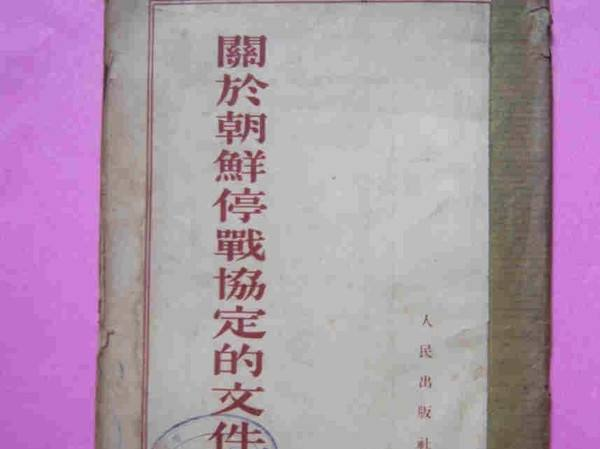 關於朝鮮停戰協定的文件
人民出版社